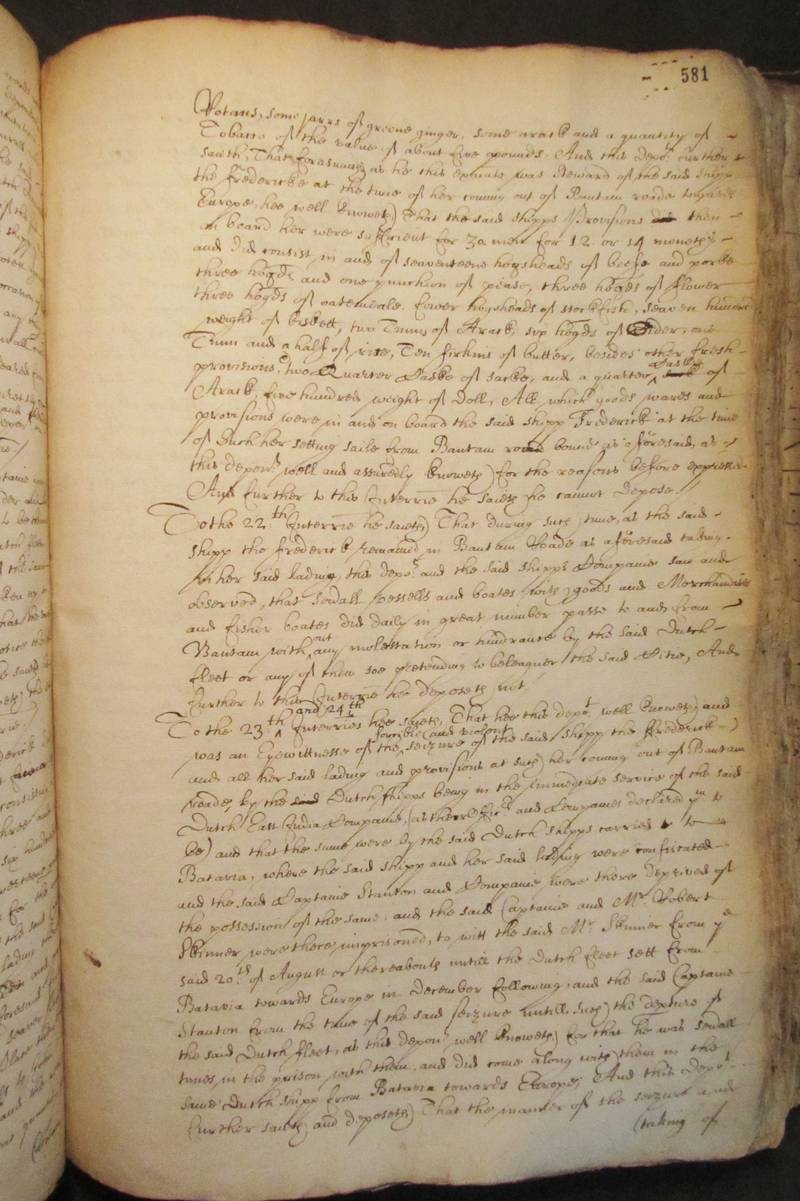 581
Potans, some jarrs of greene ginger, some arack and a quantity of
Tobacco of the value of about five pounds. And this depot further
saieth, That forasmuch as he this deponate was Steward of the said shipp
the Fredericke at the time of her coming out of Bantam roade towards
Europe, hee well knoweth That the said shipps Provisions then
on board her were sufficient for 30 men for 12 or 14 moneths
and did consist in and of seaventeene hogsheads of beefe and porke
three hogds and one punchion of pease, three hogds of flower
three hogds of oatemeale, fower hogsheads of stockfish, seaven hundred
weight of biskett, two Tunns of Arack, six hogds of Sider, one
Tunn and a half of rice, Ten firkins of butter, besides other fresh
provisions, two Quarter Caske of sacke, and a quarter Caske of
Arack five hundred weight of Doll, All which goods wares and
provisions were in and on board the said shipp Frederick at the time
of such her setting saile from Bantam road bound as aforesaid, as
this depont well and assuredly knoweth for the reasons before expressed
And further to this Interrie he saieth he cannot depose.
To the 22th Interrie he saieth That during such time, as the said
shipp the Frederick remained in Bantam Roade as aforesaid taking
in her said lading, this depot and the said shipps Companie saw and
observed, that sevall vessells and boates with goods and Merchandizes
and fisher boates did daily in great number passe to and from
Bantam, without any molestation or hindrance by the said Dutch
fleet or any of them soe pretending to beleaguer the said Citie, And
further to this Interrie he deposeth not,
To the 23th and 24th Interries hee saieth, That hee this depot well knoweth and
was an Eyewittnesse of the forcible and violent seizure of the said shipp the Frederick
and all her said lading and provisions at such her coming out of Bantam
roade, by the Dutch shipps being in the immediate service of the said
Dutch East India Companie, (as there Officrs and Companies declared ym to
be) and that the same were by the said Dutch shipps carried to
Batavia, where the said shipp and her said lading were confiscated
and the said Captaine Stanton and Companie were there deprived of
the possession of the same, and the said Captaine and Mr Robert
Skinner were there imprisoned, to witt the said Mr Skinner from ye
said 20th of August or thereabouts untill the Dutch fleet sett from
Batavia towards Europe in December following, and the said Captaine
Stanton from the time of the said seizure untill such the depture of
the said Dutch fleet, as this depont well knoweth for that he was sevall
times in the prison with them, and did come along with them in the
same Dutch shipp from Batavia towards Europe, And this depot
further saieth and deposeth That the manner of the seizure and
(taking of